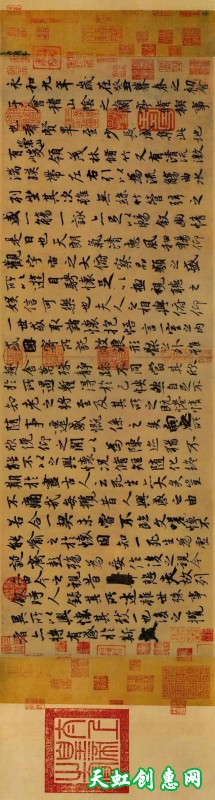 永和九年歲在癸丑暮春之初會
于會稽山陰之蘭亭脩禊事
也群賢畢至少長咸集此地
有崇山峻領茂林脩竹又有清流激
湍暎帶左右引以為流觴曲水
列坐其次雖無絲竹管弦之
盛一觴一詠亦足以暢敘幽情
是日也天朗氣清惠風和暢仰
觀宇宙之大俯察品類之盛
所以遊目騁懷足以極視聽之
娛信可樂也夫人之相與俯仰
一世或取諸懷抱悟言一室之內
或因寄所託放浪形骸之外雖
趣舍萬殊靜躁不同當其欣
於所遇蹔得於己快然自足不
知老之將至及其所之既惓情
隨事遷感慨係之矣向之所
欣俛仰之閒以為陳迹猶不
能不以之興懷況脩短隨化終
期於盡古人云死生亦大矣豈
不痛哉每攬昔人興感之由
若合一契未嘗不臨文嗟悼不
能喻之於懷固知一死生為虛
誕齊彭殤為妄作後之視今
亦由今之視昔悲夫故列
敘時人錄其所述雖世殊事
異所以興懷其致一也後之攬
者亦將有感於斯文
天虹创惠网